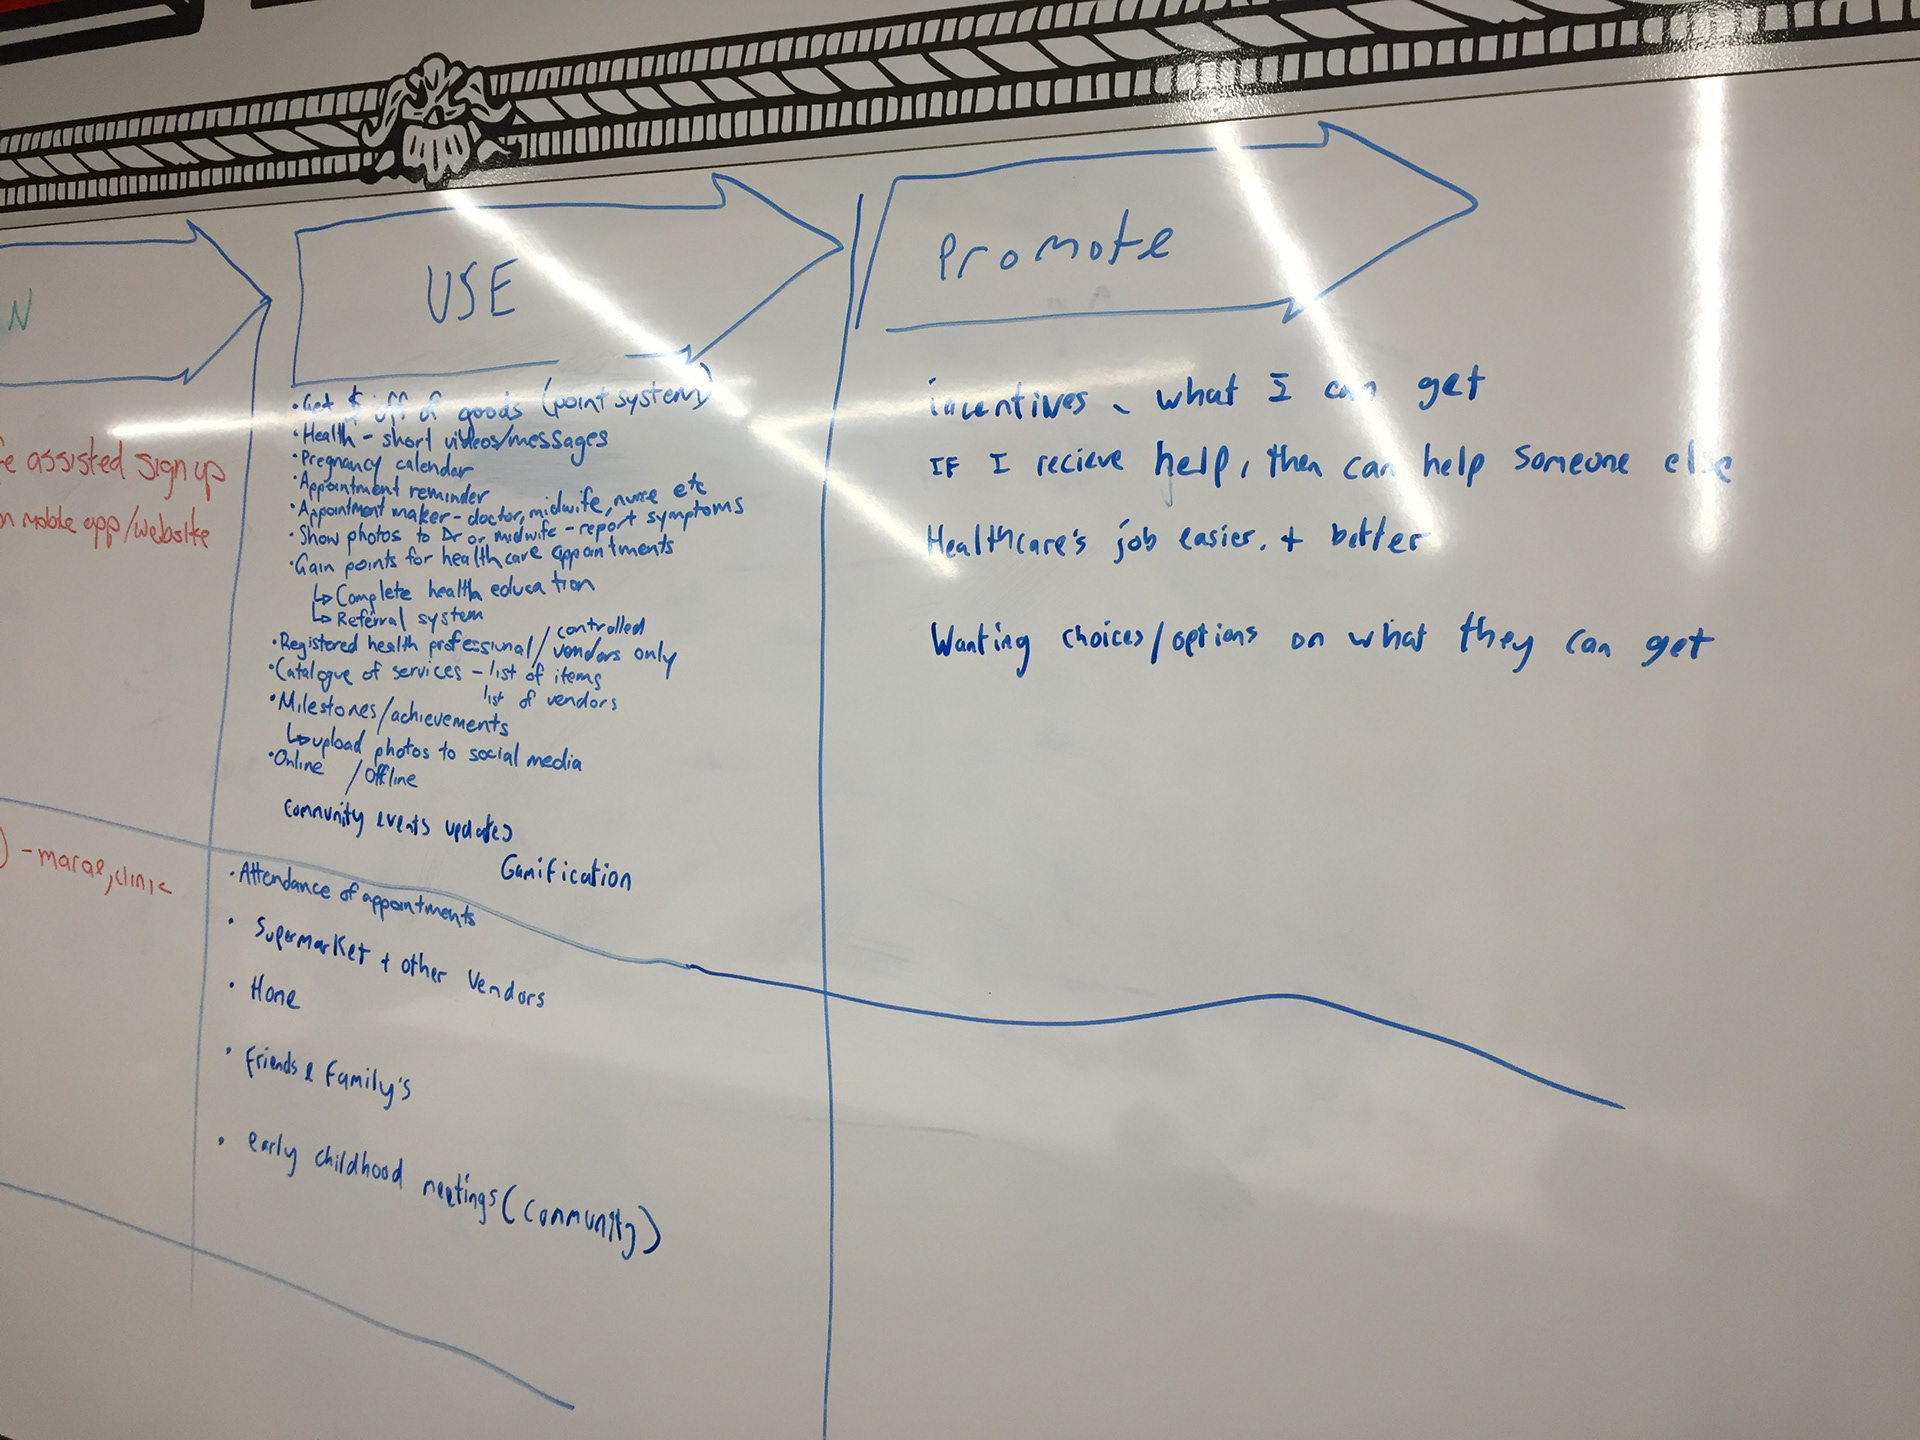 N
assisted sign up
mobile app/website
- marae, clinic
USE
• Get $ off of goods (point system)
• Health - short videos/messages
• Pregnancy calendar
• Appointment reminder
• Appointment maker - doctor, midwife, nurse etc
• Show photos to Dr or midwife - report symptoms
• Gain points for health care appointments
↳ Complete health education
↳ Referral system
• Registered health professional / controlled
vendors only
• Catalogue of services - list of items
list of vendors
• Milestones/achievements
↳ upload photos to social media
• Online / Offline
Community events updates
Gamification
• Attendance of appointments
• Supermarket + other Vendors
• Home
• Friends & Family's
• early childhood meetings (community)
Promote
incentives - what I can get
IF I recieve help, then can help someone else
Healthcare's job easier. + better
Wanting choices/options on what they can get